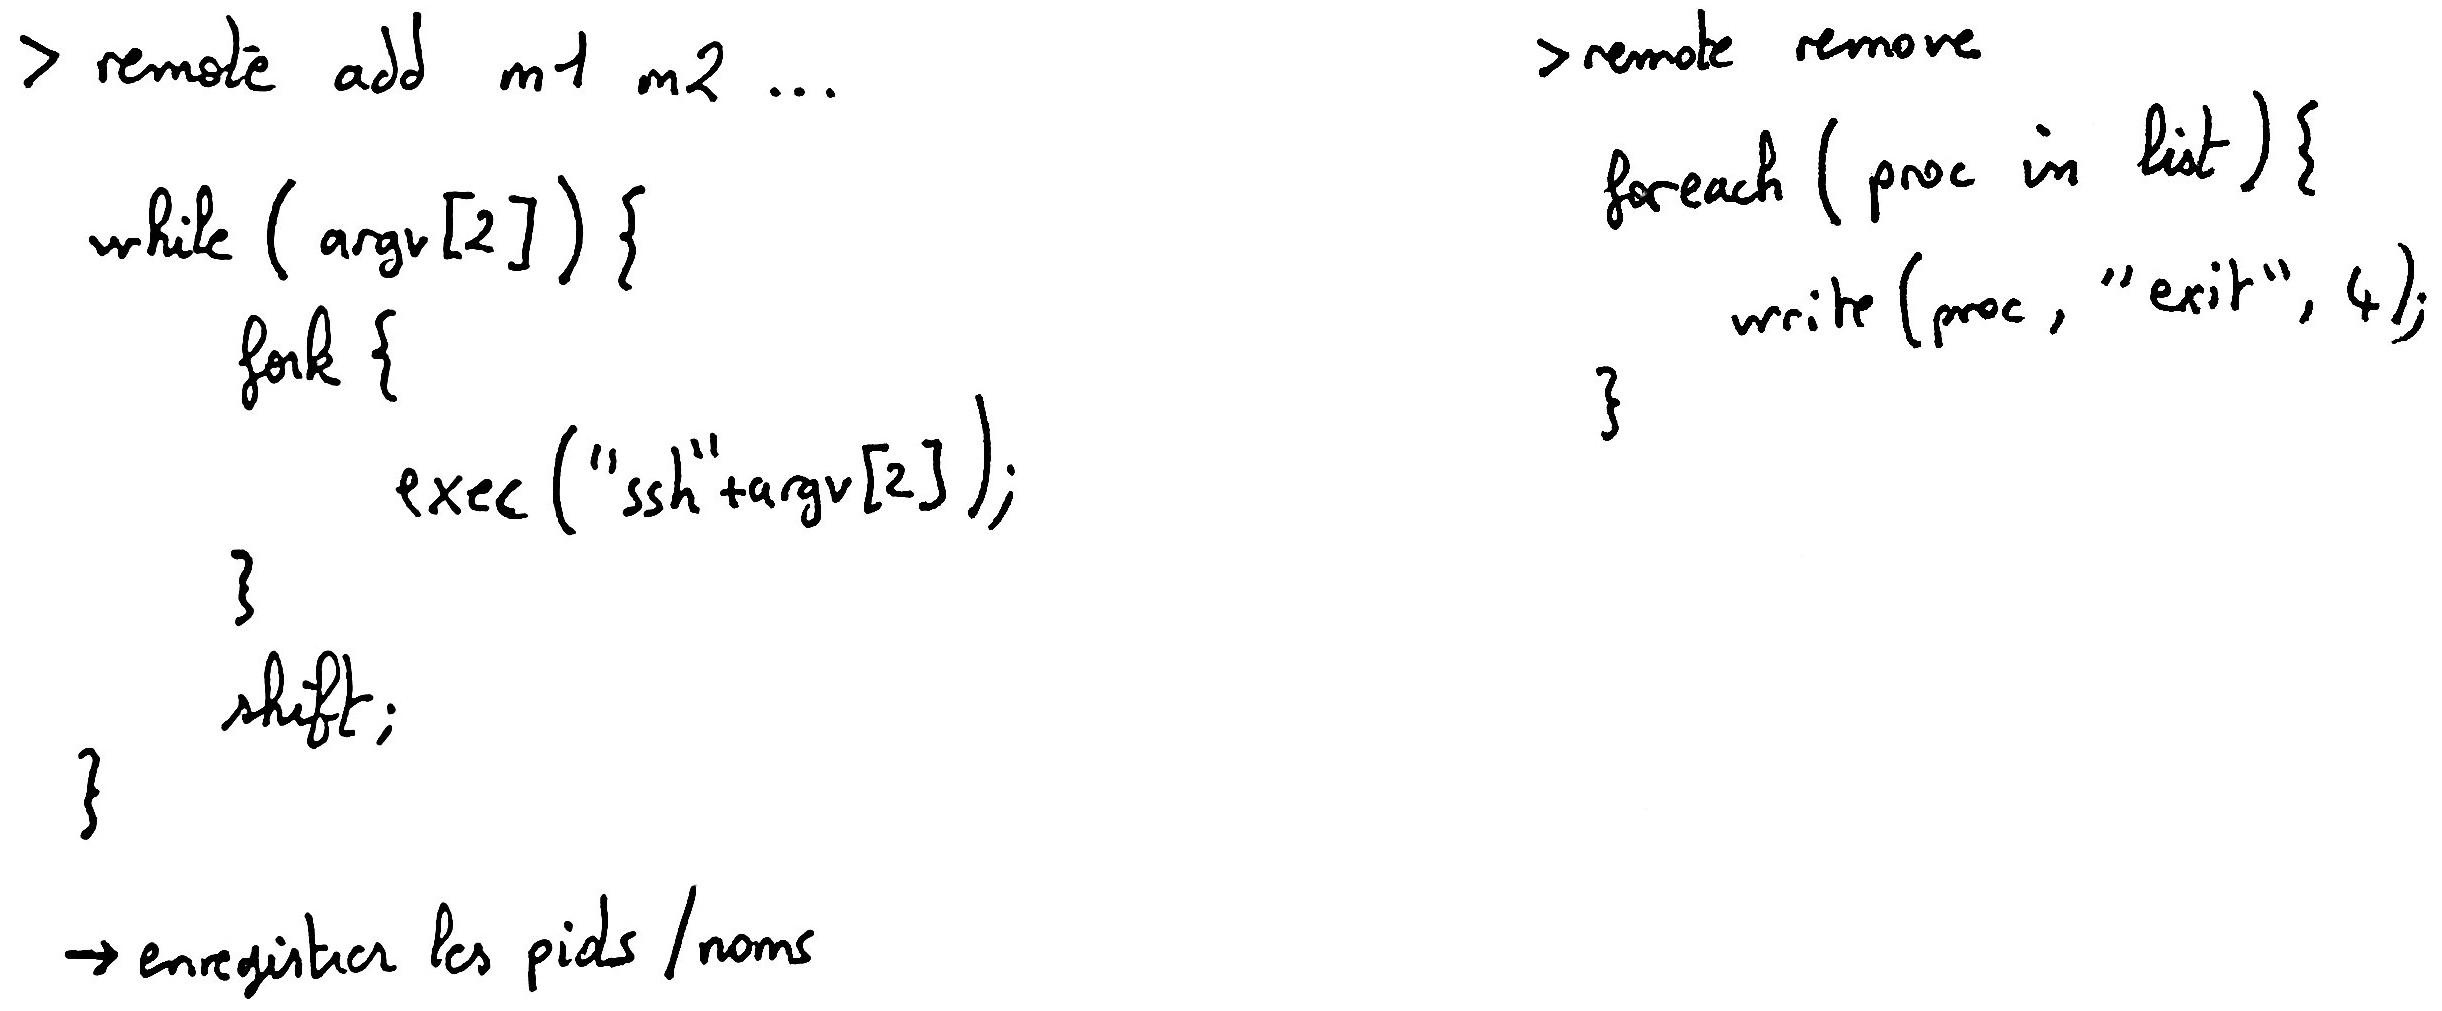 > remote add m1 m2 ...
while (argv[2]) {
fork {
exec ("ssh"+argv[2]);
}
shift;
}
→ enregistrer les pids / noms
> remote remove
foreach (proc in list) {
write (proc, "exit", 4);
}